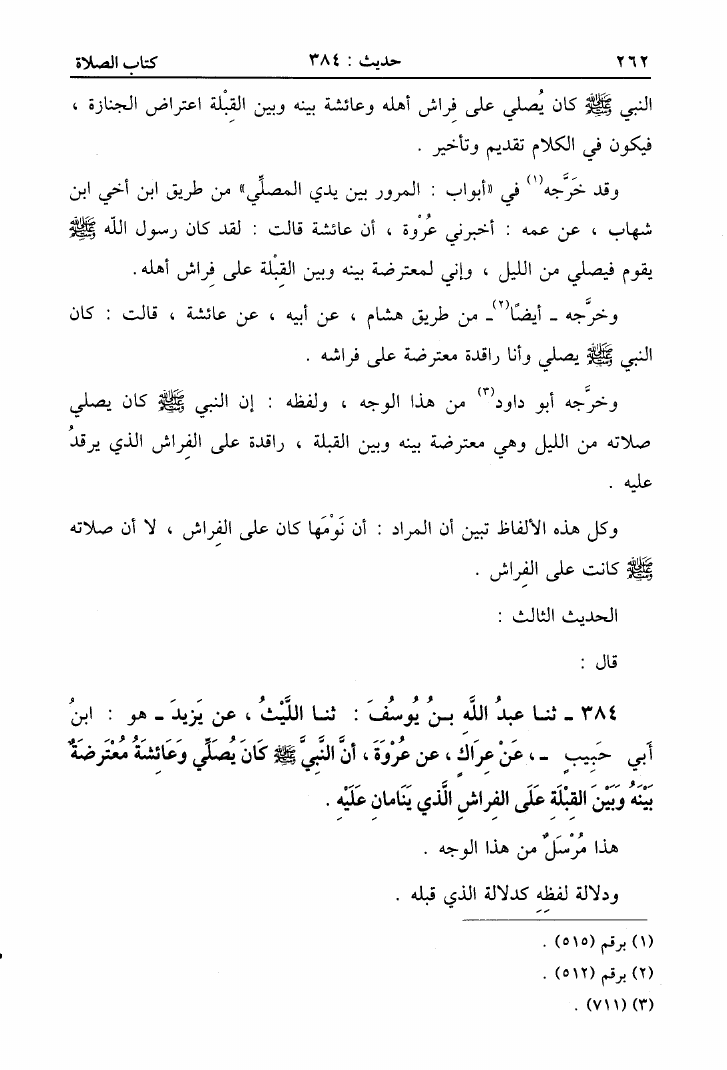 ٢٦٢ حديث : ٣٨٤ كتاب الصلاة
النبي ﷺ كان يُصلي على فِراش أهله وعائشة بينه وبين القِبْلة اعتراض الجنازة ،
فيكون في الكلام تقديم وتأخير .
وقد خَرَّجه(١) في «أبواب : المرور بين يدي المصلِّي» من طريق ابن أخي ابن
شهاب ، عن عمه : أخبرني عُرْوة ، أن عائشة قالت : لقد كان رسول الله ﷺ
يقوم فيصلي من الليل ، وإني لمعترضة بينه وبين القِبْلة على فِراش أهله.
وخرَّجه ـ أيضًا(٢)ـ من طريق هشام ، عن أبيه ، عن عائشة ، قالت : كان
النبي ﷺ يصلي وأنا راقدة معترضة على فراشه .
وخرَّجه أبو داود(٣) من هذا الوجه ، ولفظه : إن النبي ﷺ كان يصلي
صلاته من الليل وهي معترضة بينه وبين القبلة ، راقدة على الفِراش الذي يرقدُ
عليه .
وكل هذه الألفاظ تبين أن المراد : أن نَوْمَها كان على الفِراش ، لا أن صلاته
ﷺ كانت على الفِراش .
الحديث الثالث :
قال :
٣٨٤ ـ ثنا عبدُ اللَّهِ بنُ يُوسُفَ : ثنا اللَّيْثُ ، عن يَزِيدَ ـ هو : ابنُ
أَبي حَبِيبٍ ـ، عَنْ عِرَاكٍ ، عن عُرْوَةَ ، أنَّ النَّبِيَّ ﷺ كَانَ يُصَلِّي وَعَائِشَةُ مُعْتَرِضَةٌ
بَيْنَهُ وَبَيْنَ القِبْلَةِ عَلَى الفِرَاشِ الَّذي يَنَامانِ عَلَيْهِ .
هذا مُرْسَلٌ من هذا الوجه .
ودلالة لفظِهِ كدلالة الذي قبله .
(١) برقم (٥١٥) .
(٢) برقم (٥١٢) .
(٣) (٧١١) .